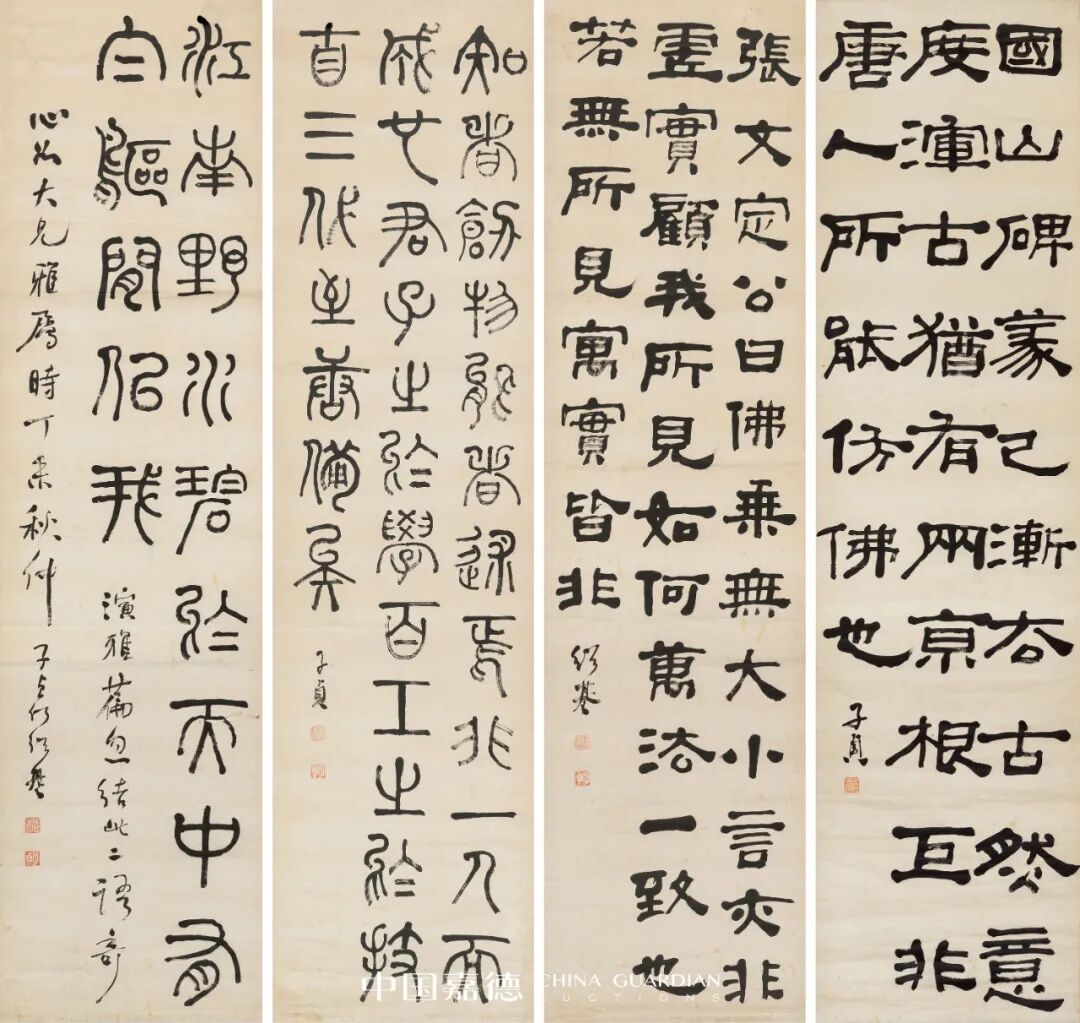 國山碑篆已漸古然意
度渾古猶有兩京根巨非
唐人所能仿佛也
子貞
張文定公曰佛乘無大小言亦非
虛實顧我所見如何萬法一致也
若無所見寓實皆非
紹基
知者創物能者述焉非一人而
成也君子之於學百工之於技
自三代至唐備矣
子貞
江南野水碧於天中有
白鷗閒似我
演雅篇忽結此二語奇
心大兄雅屬時丁未秋仲
子貞何紹基
中国嘉德 CHINA GUARDIAN
AUCTIONS